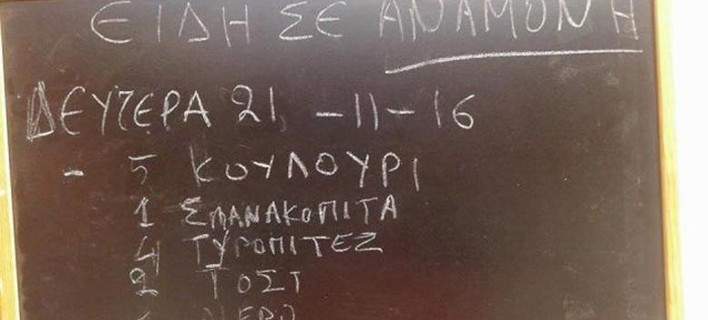 ΕΙΔΗ ΣΕ ΑΝΑΜΟΝΗ
ΔΕΥΤΕΡΑ 21 -11-16
- 5 ΚΟΥΛΟΥΡΙ
1 ΣΠΑΝΑΚΟΠΙΤΑ
4 ΤΥΡΟΠΙΤΕΖ
2 ΤΟΣΤ
ΝΕΡΟ